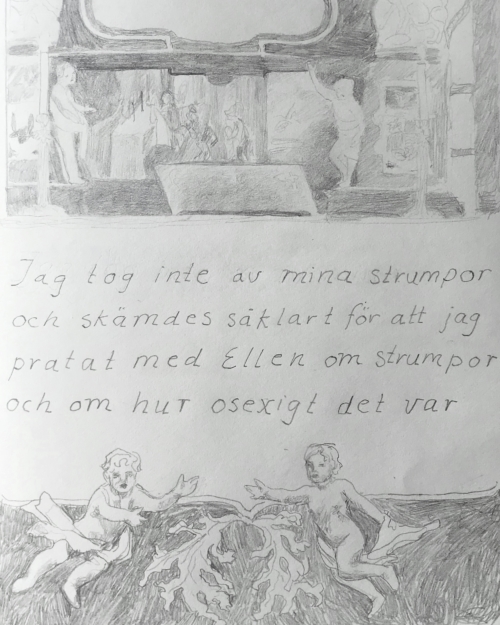 Jag tog inte av mina strumpor
och skämdes såklart för att jag
pratat med Ellen om strumpor
och om hur osexigt det var